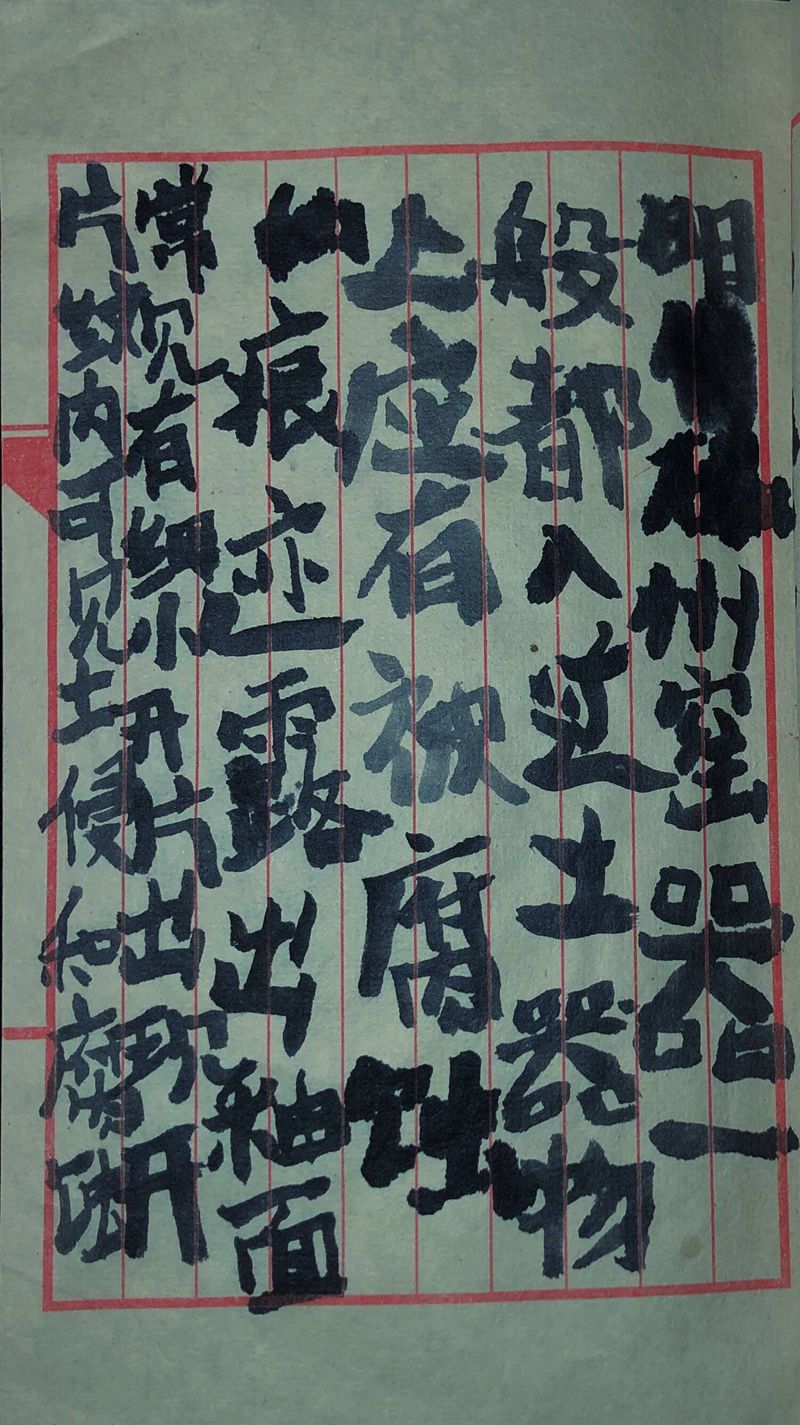 明州窑器一
般都入过土器物
上应有被腐蚀
痕迹露出釉面
常现有细小开片出现开
片内可见土侵和腐蚀